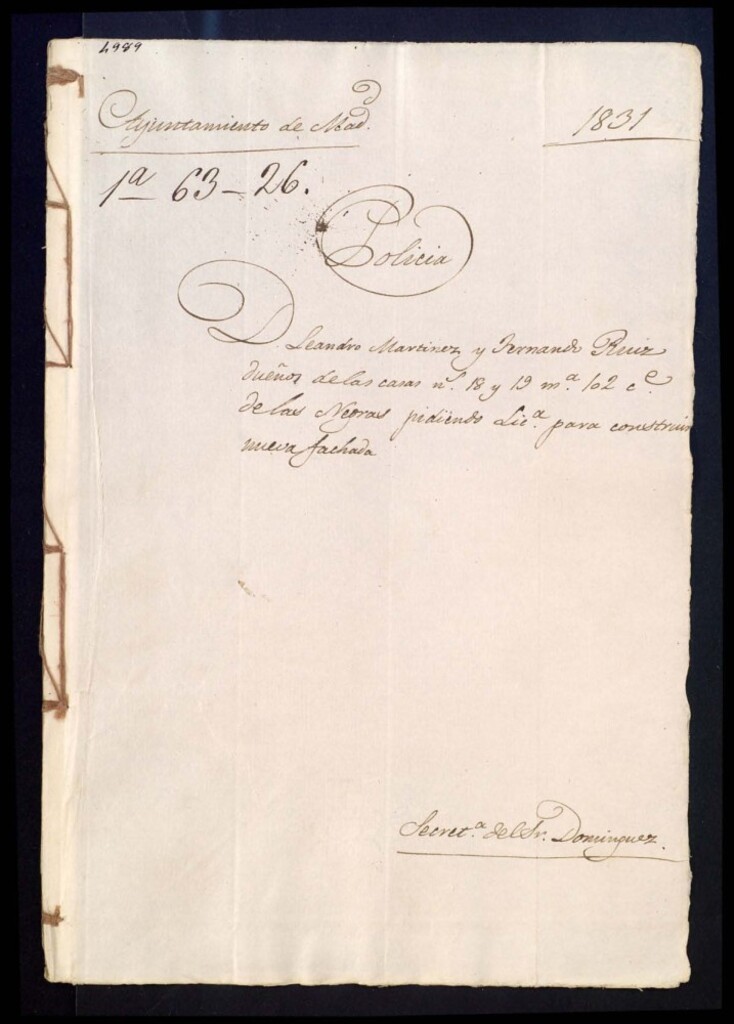 4989
Ayuntamiento de Mad.d
1831
1ª 63-26.
Policia
D. Leandro Martinez y Fernando Ruiz
dueños de las casas n.s 18 y 19 m.ª 102 c.e
de las Negras pidiendo Lic.ª para construir
nueva fachada
Secret.ª del Sr. Dominguez.